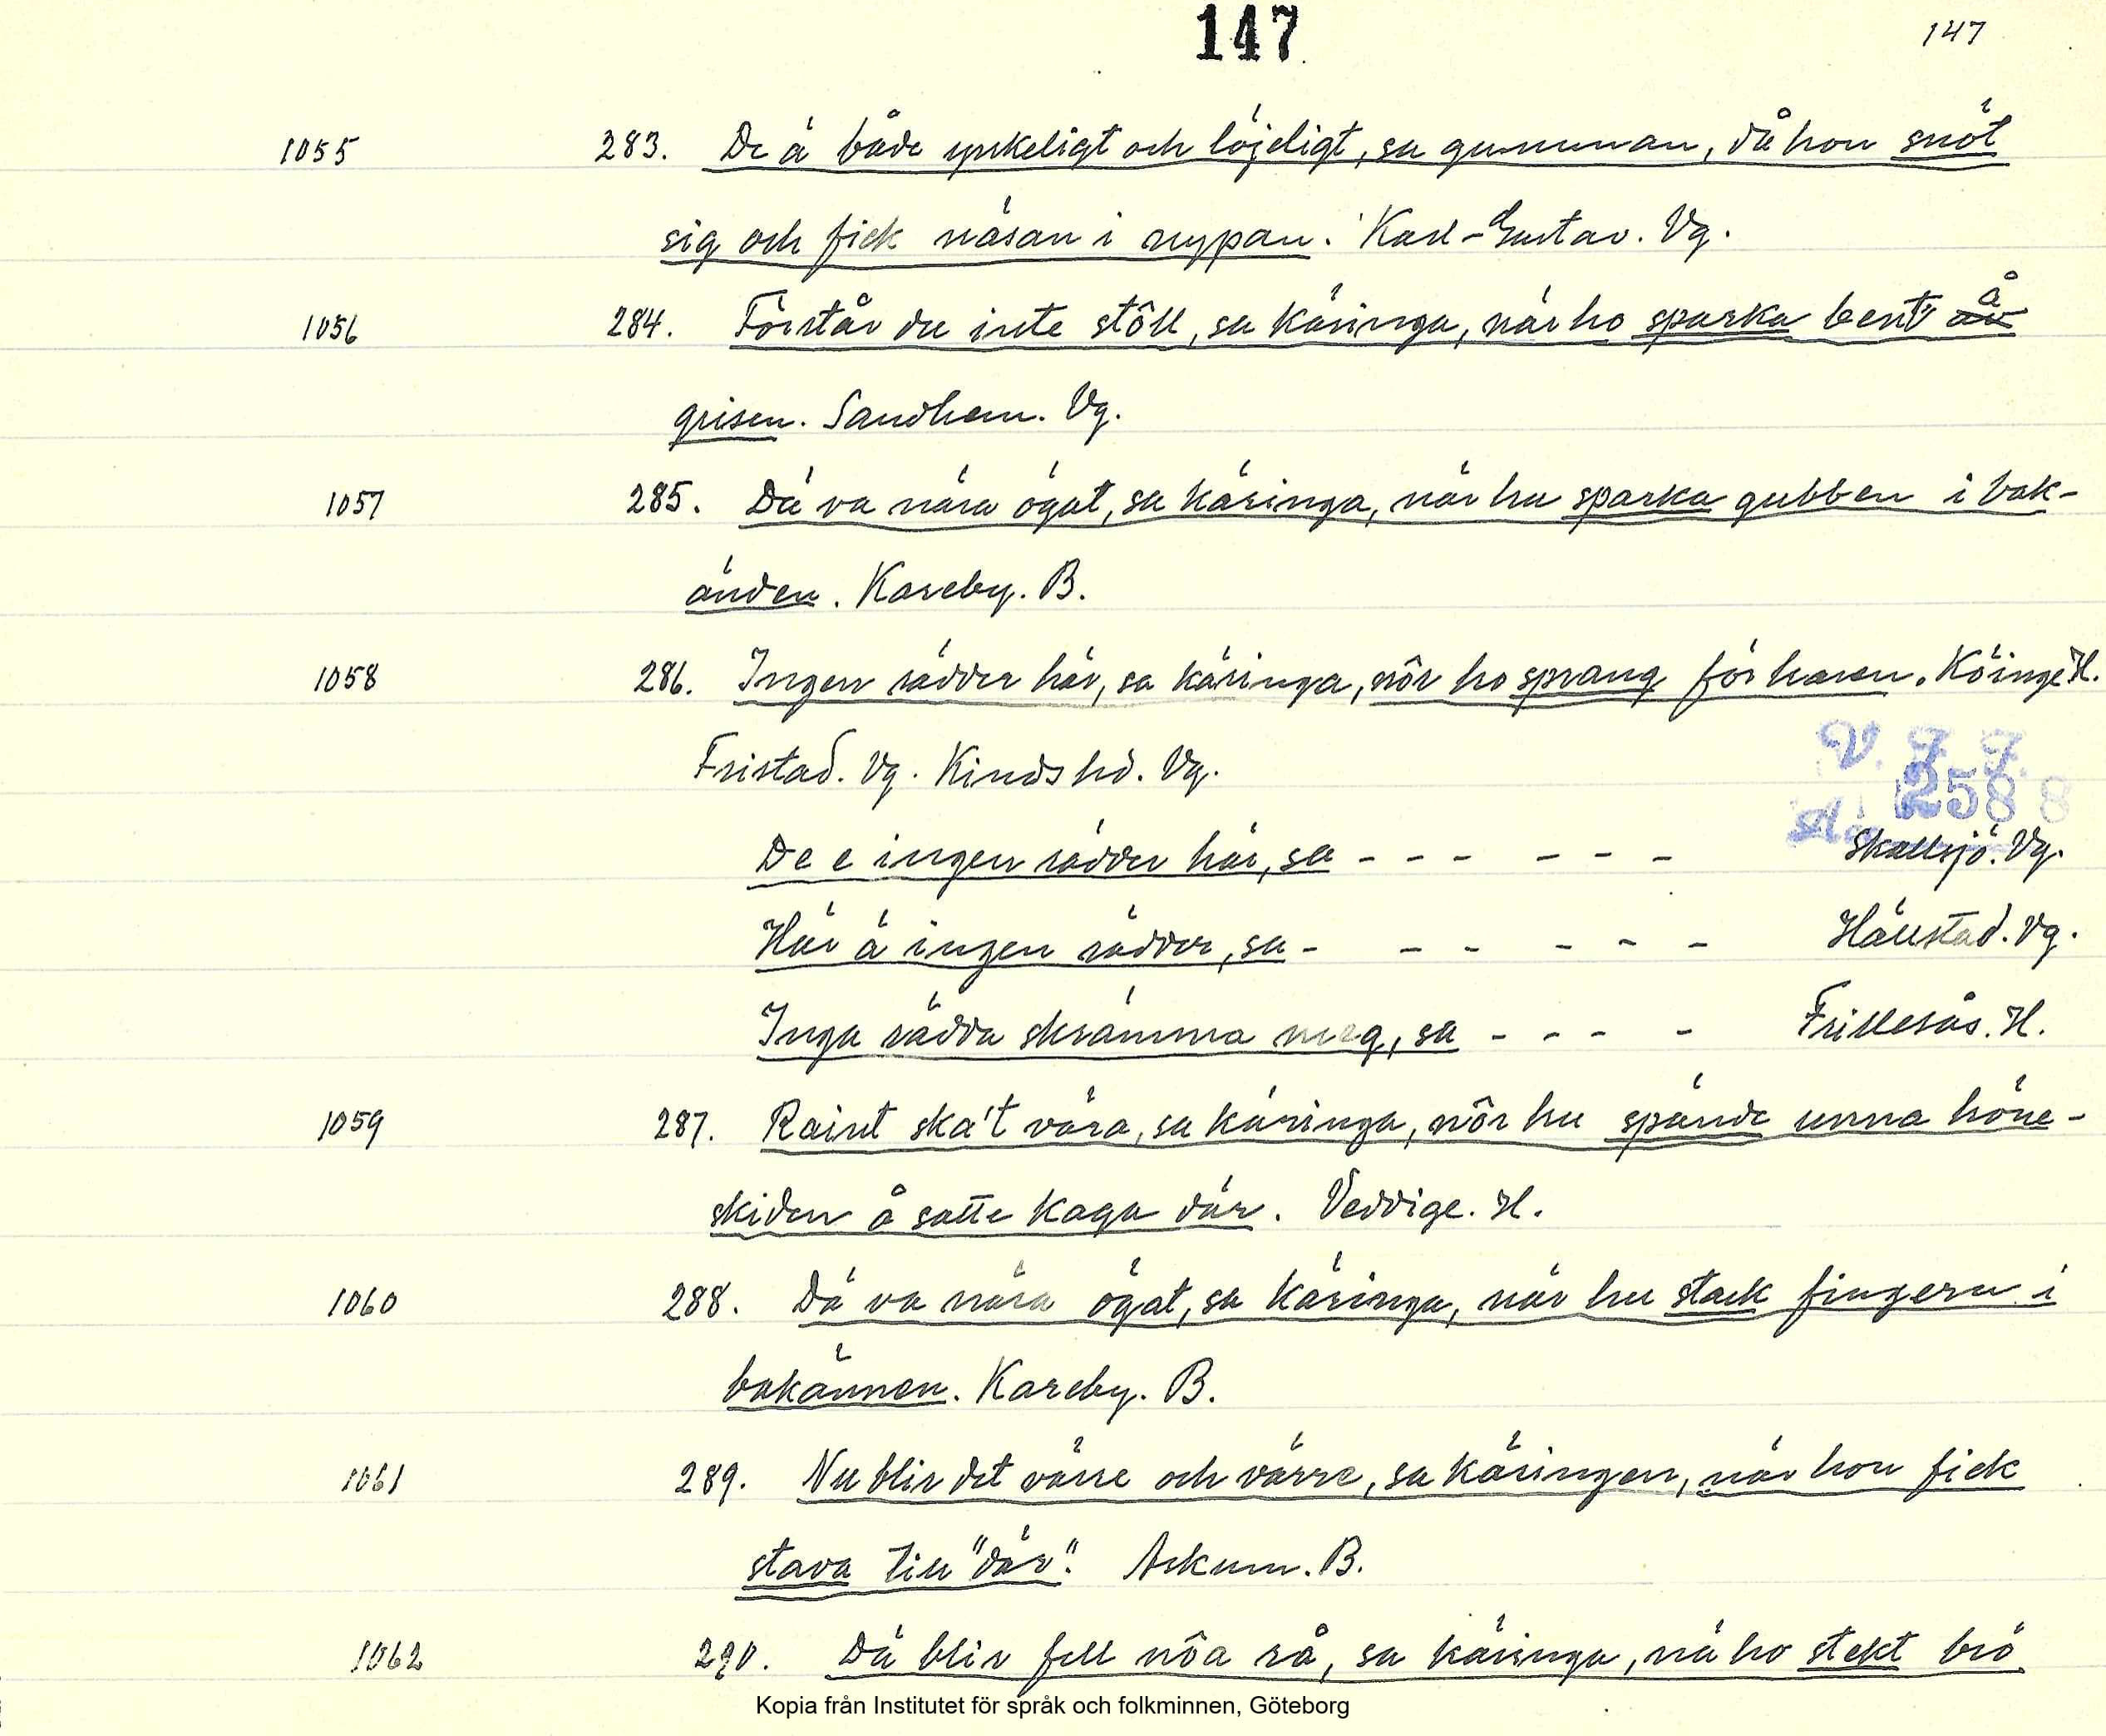 147 147
1055 283. De ä både ynkeligt och löjeligt, sa gumman, då hon snöt
sig och fick näsan i nypan. Karl-Gustav. Vg.
1056 284. Förstår du inte stôll, sa käringa, när ho sparka bent å
grisen. Sandhem. Vg.
1057 285. Dä va nära ögat, sa käringa, när hu sparka gubben i bak-
änden. Kareby. B.
1058 286. Ingen rädder här, sa käringa, nôr ho sprang för haren. Köinge H.
Fristad. Vg. Kinds hd. Vg.
V. F. F.
258
De e ingen rädder här, sa - - - - - - Skallsjö. Vg.
Här ä ingen rädder, sa - - - - - - Hällstad. Vg.
Inga rädda skrämma meg, sa - - - - Frillesås. H.
1059 287. Raint ska't våra, sa käringa, nôr hu spände unna höne-
skiden å satte kaga där. Veddige. H.
1060 288. Dä va nära ögat, sa käringa, när hu stack fingern i
bakännen. Kareby. B.
1061 289. Nu blir det värre och värre, sa käringen, när hon fick
stava till "där". Askum. B.
1062 290. Dä blir fell nôa rå, sa käringa, nä ho stekt brö
Kopia från Institutet för språk och folkminnen, Göteborg